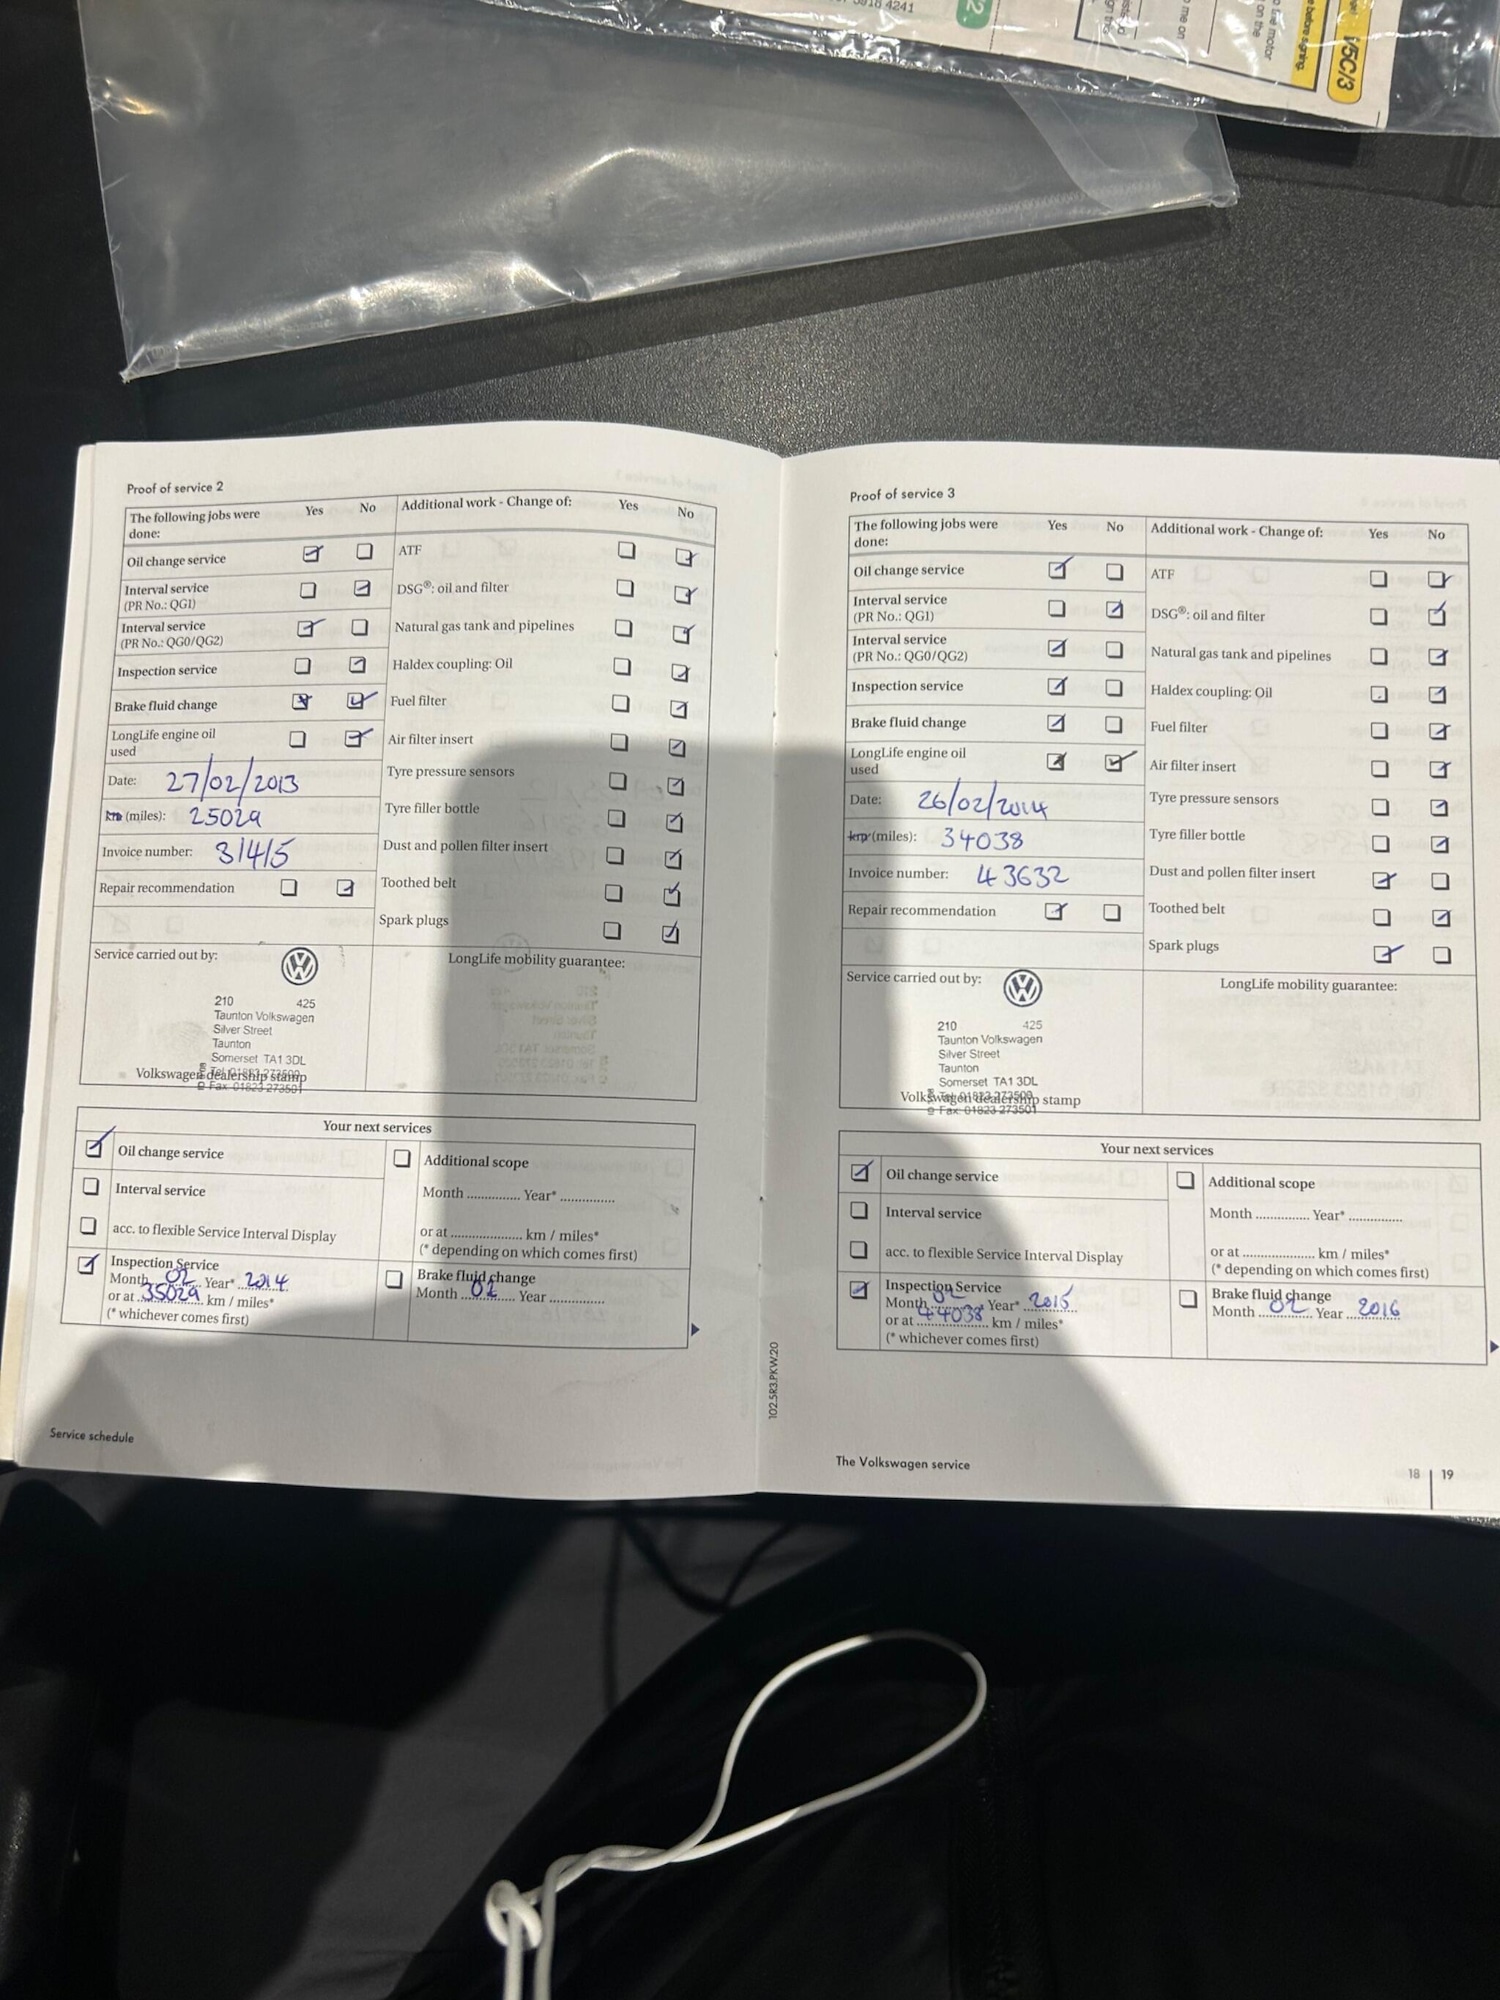 5818 4241
2.
me on
motor
on the
e before signing.
V5C/3
Proof of service 2
The following jobs were done: Yes No
Oil change service
Interval service
(PR No.: QG1)
Interval service
(PR No.: QG0/QG2)
Inspection service
Brake fluid change
LongLife engine oil
used
Date: 27/02/2013
km (miles): 25029
Invoice number: 31415
Repair recommendation
Additional work - Change of: Yes No
ATF
DSG®: oil and filter
Natural gas tank and pipelines
Haldex coupling: Oil
Fuel filter
Air filter insert
Tyre pressure sensors
Tyre filler bottle
Dust and pollen filter insert
Toothed belt
Spark plugs
Service carried out by:
210 425
Taunton Volkswagen
Silver Street
Taunton
Somerset TA1 3DL
Tel: 01823 273500
Fax: 01823 273501
Volkswagen dealership stamp
LongLife mobility guarantee:
Your next services
Oil change service
Interval service
acc. to flexible Service Interval Display
Inspection Service
Month 02 Year* 2014
or at 35029 km / miles*
(* whichever comes first)
Additional scope
Month ............... Year* ...............
or at .................... km / miles*
(* depending on which comes first)
Brake fluid change
Month 02 Year ...............
Service schedule
Proof of service 3
The following jobs were
done: Yes No
Oil change service
Interval service
(PR No.: QG1)
Interval service
(PR No.: QG0/QG2)
Inspection service
Brake fluid change
LongLife engine oil
used
Date: 26/02/2014
km (miles): 34038
Invoice number: 43632
Repair recommendation
Additional work - Change of: Yes No
ATF
DSG®: oil and filter
Natural gas tank and pipelines
Haldex coupling: Oil
Fuel filter
Air filter insert
Tyre pressure sensors
Tyre filler bottle
Dust and pollen filter insert
Toothed belt
Spark plugs
Service carried out by:
210 425
Taunton Volkswagen
Silver Street
Taunton
Somerset TA1 3DL
Tel: 01823 273500
Fax: 01823 273501
Volkswagen dealership stamp
LongLife mobility guarantee:
Your next services
Oil change service
Interval service
acc. to flexible Service Interval Display
Inspection Service
Month 02 Year* 2015
or at 44038 km / miles*
(* whichever comes first)
Additional scope
Month ............... Year* ...............
or at .................... km / miles*
(* depending on which comes first)
Brake fluid change
Month 02 Year 2016
102.5R3.PKW.20
The Volkswagen service
18 | 19